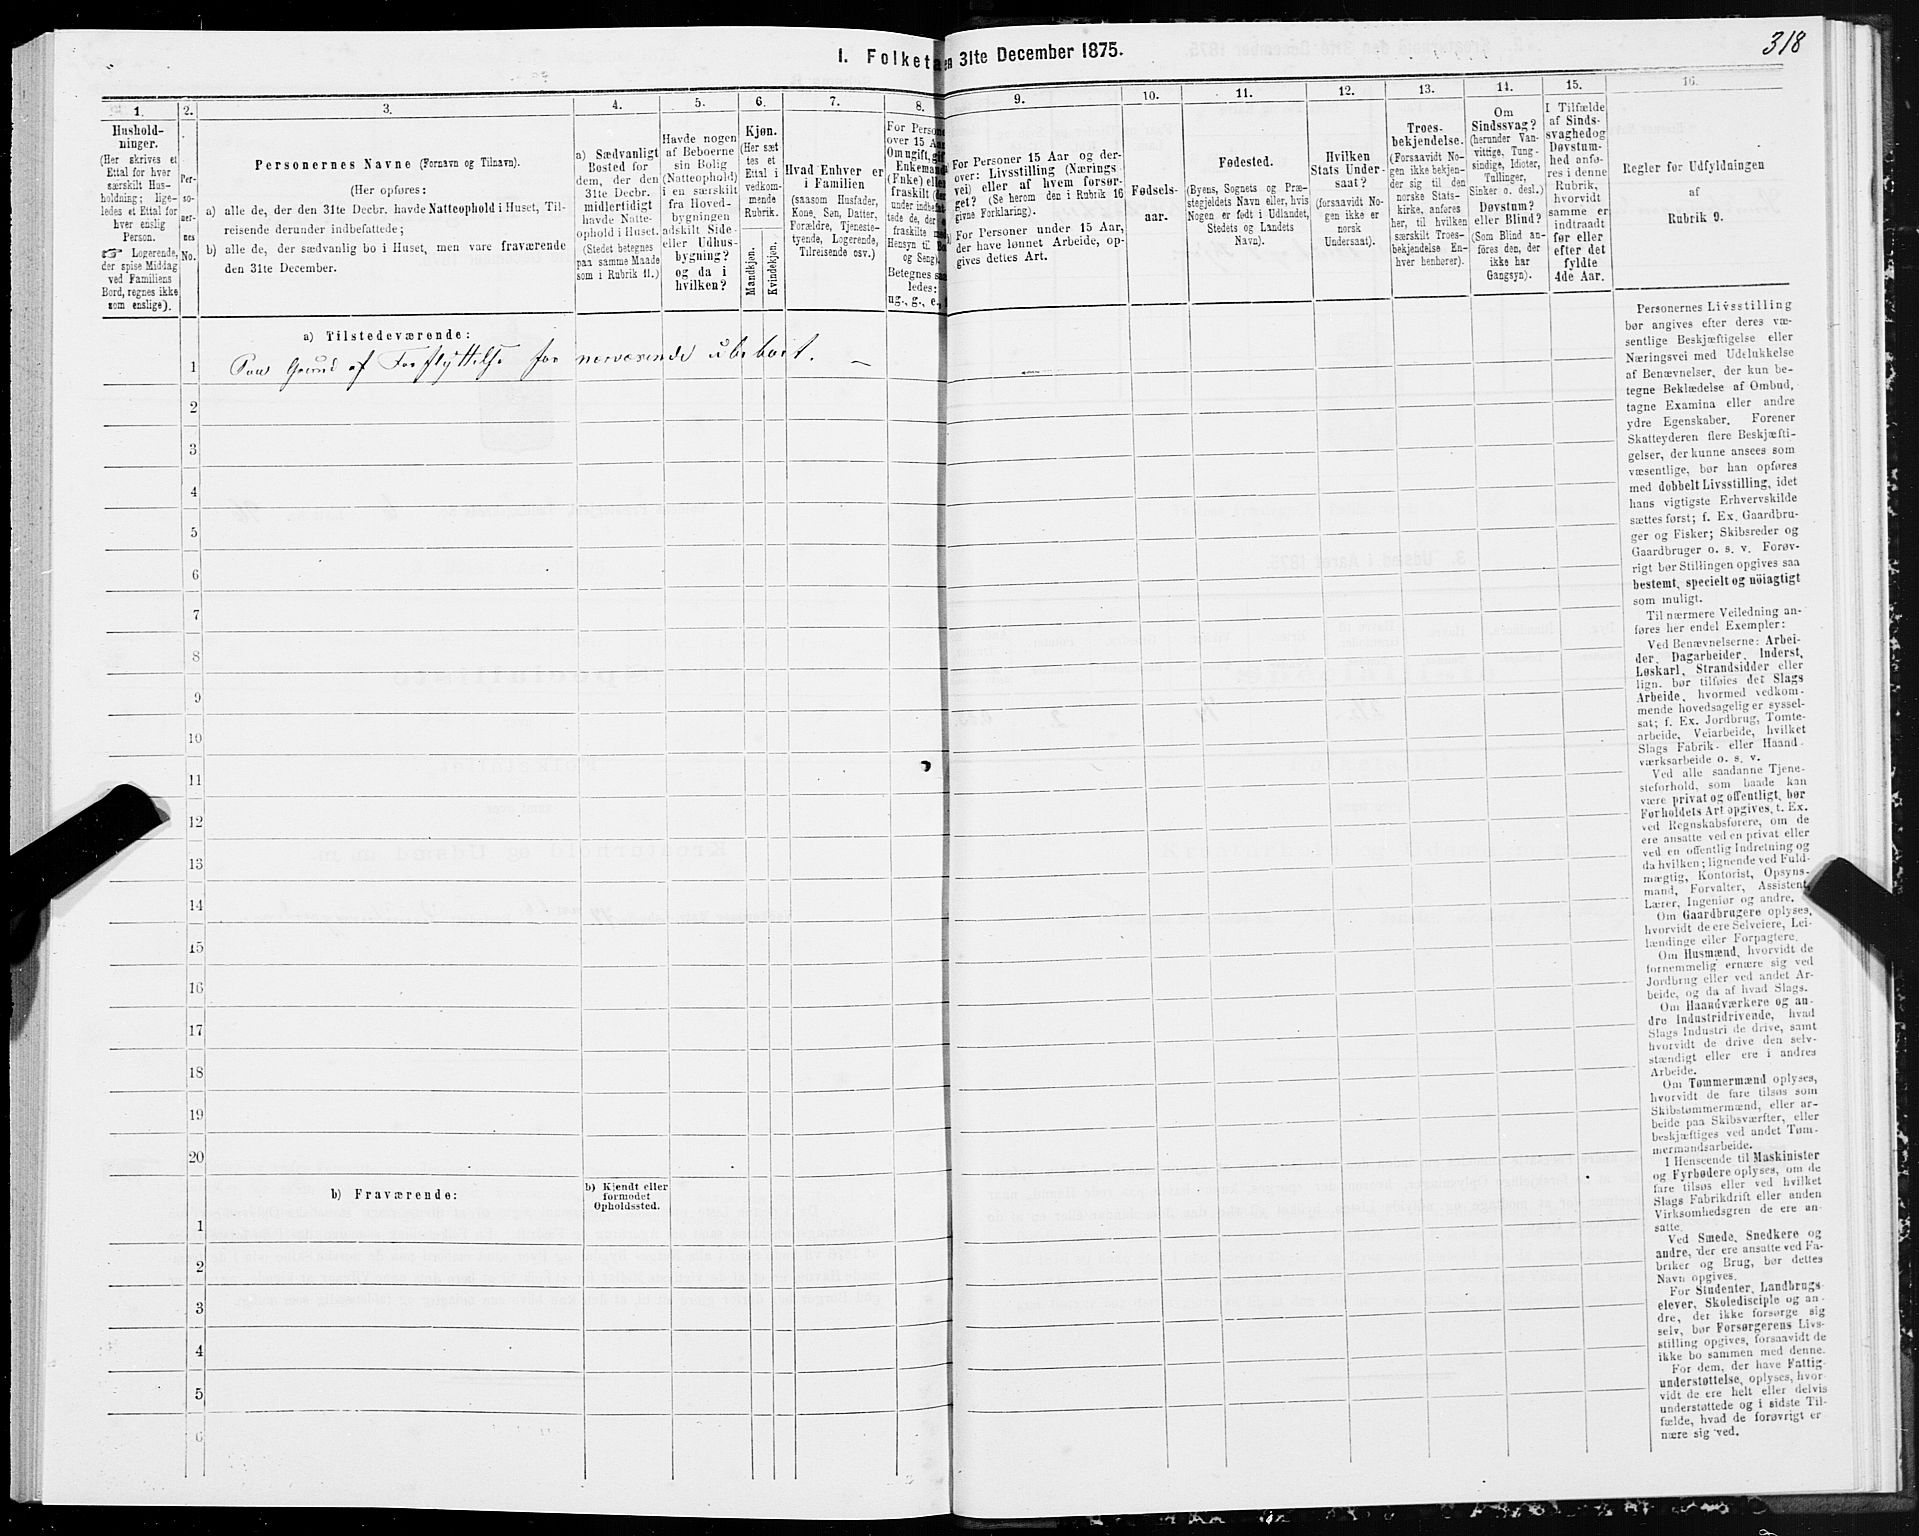 318
I. Folketa en 31te December 1875.
1. 2. 3. 4. 5. 6. 7. 8. 9. 10. 11. 12. 13. 14. 15. 16.
Hushold-
ninger.
(Her skrives et
Ettal for hver
særskilt Hus-
holdning; lige-
ledes et Ettal for
hver enslig
Person.
☞ Logerende,
der spise Middag
ved Familiens
Bord, regnes ikke
som enslige).
Per-
so-
ner-
nes
No.
Personernes Navne (Fornavn og Tilnavn).
(Her opføres:
a) alle de, der den 31te Decbr. havde Natteophold i Huset, Til-
reisende derunder indbefattede;
b) alle de, der sædvanlig bo i Huset, men vare fraværende
den 31te December.
a) Sædvanligt
Bosted for
dem, der den
31te Decbr.
midlertidigt
havde Natte-
ophold i Huset.
(Stedet betegnes
paa samme Maade
som i Rubrik 11.)
Havde nogen
af Beboerne
sin Bolig
(Natteophold)
i en særskilt
fra Hoved-
bygningen
adskilt Side-
eller Udhus-
bygning?
og da i
hvilken?
Kjøn.
(Her sæt
tes et
Ettal i
vedkom-
mende
Rubrik.
Mandkjøn.
Kvindekjøn.
Hvad Enhver er
i Familien
(saasom Husfader,
Kone, Søn, Datter,
Forældre, Tjeneste-
tyende, Logerende,
Tilreisende osv.)
For Persone
over 15 Aar
Om ugift, gif
Enkemand
(Enke) eller
fraskilt (der
under indbefat-
tede de, der e
fraskilte med
Hensyn til Bo
og Seng).
Betegnes saa
ledes:
ug., g., e.,
For Personer 15 Aar og der-
over: Livsstilling (Nærings-
vei) eller af hvem forsør-
get? (Se herom den i Rubrik 16
givne Forklaring).
For Personer under 15 Aar,
der have lønnet Arbeide, op-
gives dettes Art.
Fødsels-
aar.
Fødested.
(Byens, Sognets og Præ-
stegjeldets Navn eller, hvis
Nogen er født i Udlandet,
Stedets og Landets
Navn).
Hvilken
Stats Under-
saat?
(forsaavidt No-
gen ikke er
norsk
Undersaat).
Troes-
bekjendelse.
(Forsaavidt No-
gen ikke bekjen-
der sig til den
norske Stats-
kirke, anføres
her, til hvilken
særskilt Troes-
bekjendelse En-
hver henhører).
Om
Sindssvag?
(herunder Van-
vittige, Tung-
sindige, Idioter,
Tullinger,
Sinker o. desl.)
Døvstum?
eller Blind?
(Som Blind an-
føres den, der
ikke har
Gangsyn).
I Tilfælde
af Sinds-
svaghedog
Døvstum-
hed anfø-
res i denne
Rubrik,
hvorvidt
samme er
indtraadt
før eller
efter det
fyldte
4de Aar.
Regler for Udfyldningen
af
Rubrik 9.
a) Tilstedeværende:
1 Paa Grund af Forflyttelse for nærværende ubeboet. —
2
3
4
5
6
7
8
9
10
11
12
13
14
15
16
17
18
19
20
b) Fraværende:
b) Kjendt eller
formodet
Opholdssted.
1
2
3
4
5
6
Personernes Livsstilling
bør angives efter deres væ-
sentlige Beskjæftigelse eller
Næringsvei med Udelukkelse
af Benævnelser, der kun be-
tegne Beklædelse af Ombud,
tagne Examina eller andre
ydre Egenskaber. Forener
Skatteyderen flere Beskjæfti-
gelser, der kunne ansees som
væsentlige, bør han opføres
med dobbelt Livsstilling, idet
hans vigtigste Erhvervskilde
sættes først; f. Ex. Gaardbru-
ger og Fisker; Skibsreder og
Gaardbruger o. s. v. Forøv-
rigt bør Stillingen opgives saa
bestemt, specielt og nöiagtigt
som muligt.
Til nærmere Veiledning an-
føres her endel Exempler:
Ved Benævnelserne: Arbei-
der, Dagarbeider, Inderst,
Løskarl, Strandsidder eller
lign. bør tilføies det Slags
Arbeide, hvormed vedkom-
mende hovedsagelig er syssel-
sat; f. Ex. Jordbrug, Tomte-
arbeide, Veiarbeide, hvilket
Slags Fabrik- eller Haand-
værksarbeide o. s. v.
Ved alle saadanne Tjene-
steforhold, som baade kan
være privat og offentligt, bør
Forholdets Art opgives, t. Ex.
ved Regnskabsførere, om de
ere ansatte ved en privat eller
ved en offentlig Indretning og
da hvilken; lignende ved Fuld-
mægtig, Kontorist, Opsyns-
mand, Forvalter, Assistent,
Lærer, Ingeniør og andre.
Om Gaardbrugere oplyses,
hvorvidt de ere Selveiere, Lei-
lændinge eller Forpagtere.
Om Husmænd, hvorvidt de
fornemmelig ernære sig ved
Jordbrug eller ved andet Ar-
beide, og da af hvad Slags.
Om Haandværkere og an-
dre Industridrivende, hvad
Slags Industri de drive, samt
hvorvidt de drive den selv-
stændigt eller ere i andres
Arbeide.
Om Tømmermænd oplyses,
hvorvidt de fare tilsøs som
Skibstømmermænd, eller ar-
beide paa Skibsværfter, eller
beskjæftiges ved andet Tøm-
mermandsarbeide.
I Henseende til Maskinister
og Fyrbødere oplyses, om de
fare tilsøs eller ved hvilket
Slags Fabrikdrift eller anden
Virksomhedsgren de ere an-
satte.
Ved Smede, Snedkere og
andre, der ere ansatte ved Fa-
briker og Brug, bør dettes
Navn opgives.
For Studenter, Landbrugs-
elever, Skoledisciple og an-
dre, der ikke forsørge sig
selv, bør Forsørgerens Livs-
stilling opgives, forsaavidt de
ikke bo sammen med denne.
For dem, der have Fattig-
understøttelse, oplyses, hvor-
vidt de ere helt eller delvis
understøttede og i sidste Til-
fælde, hvad de forøvrigt er-
nære sig ved.